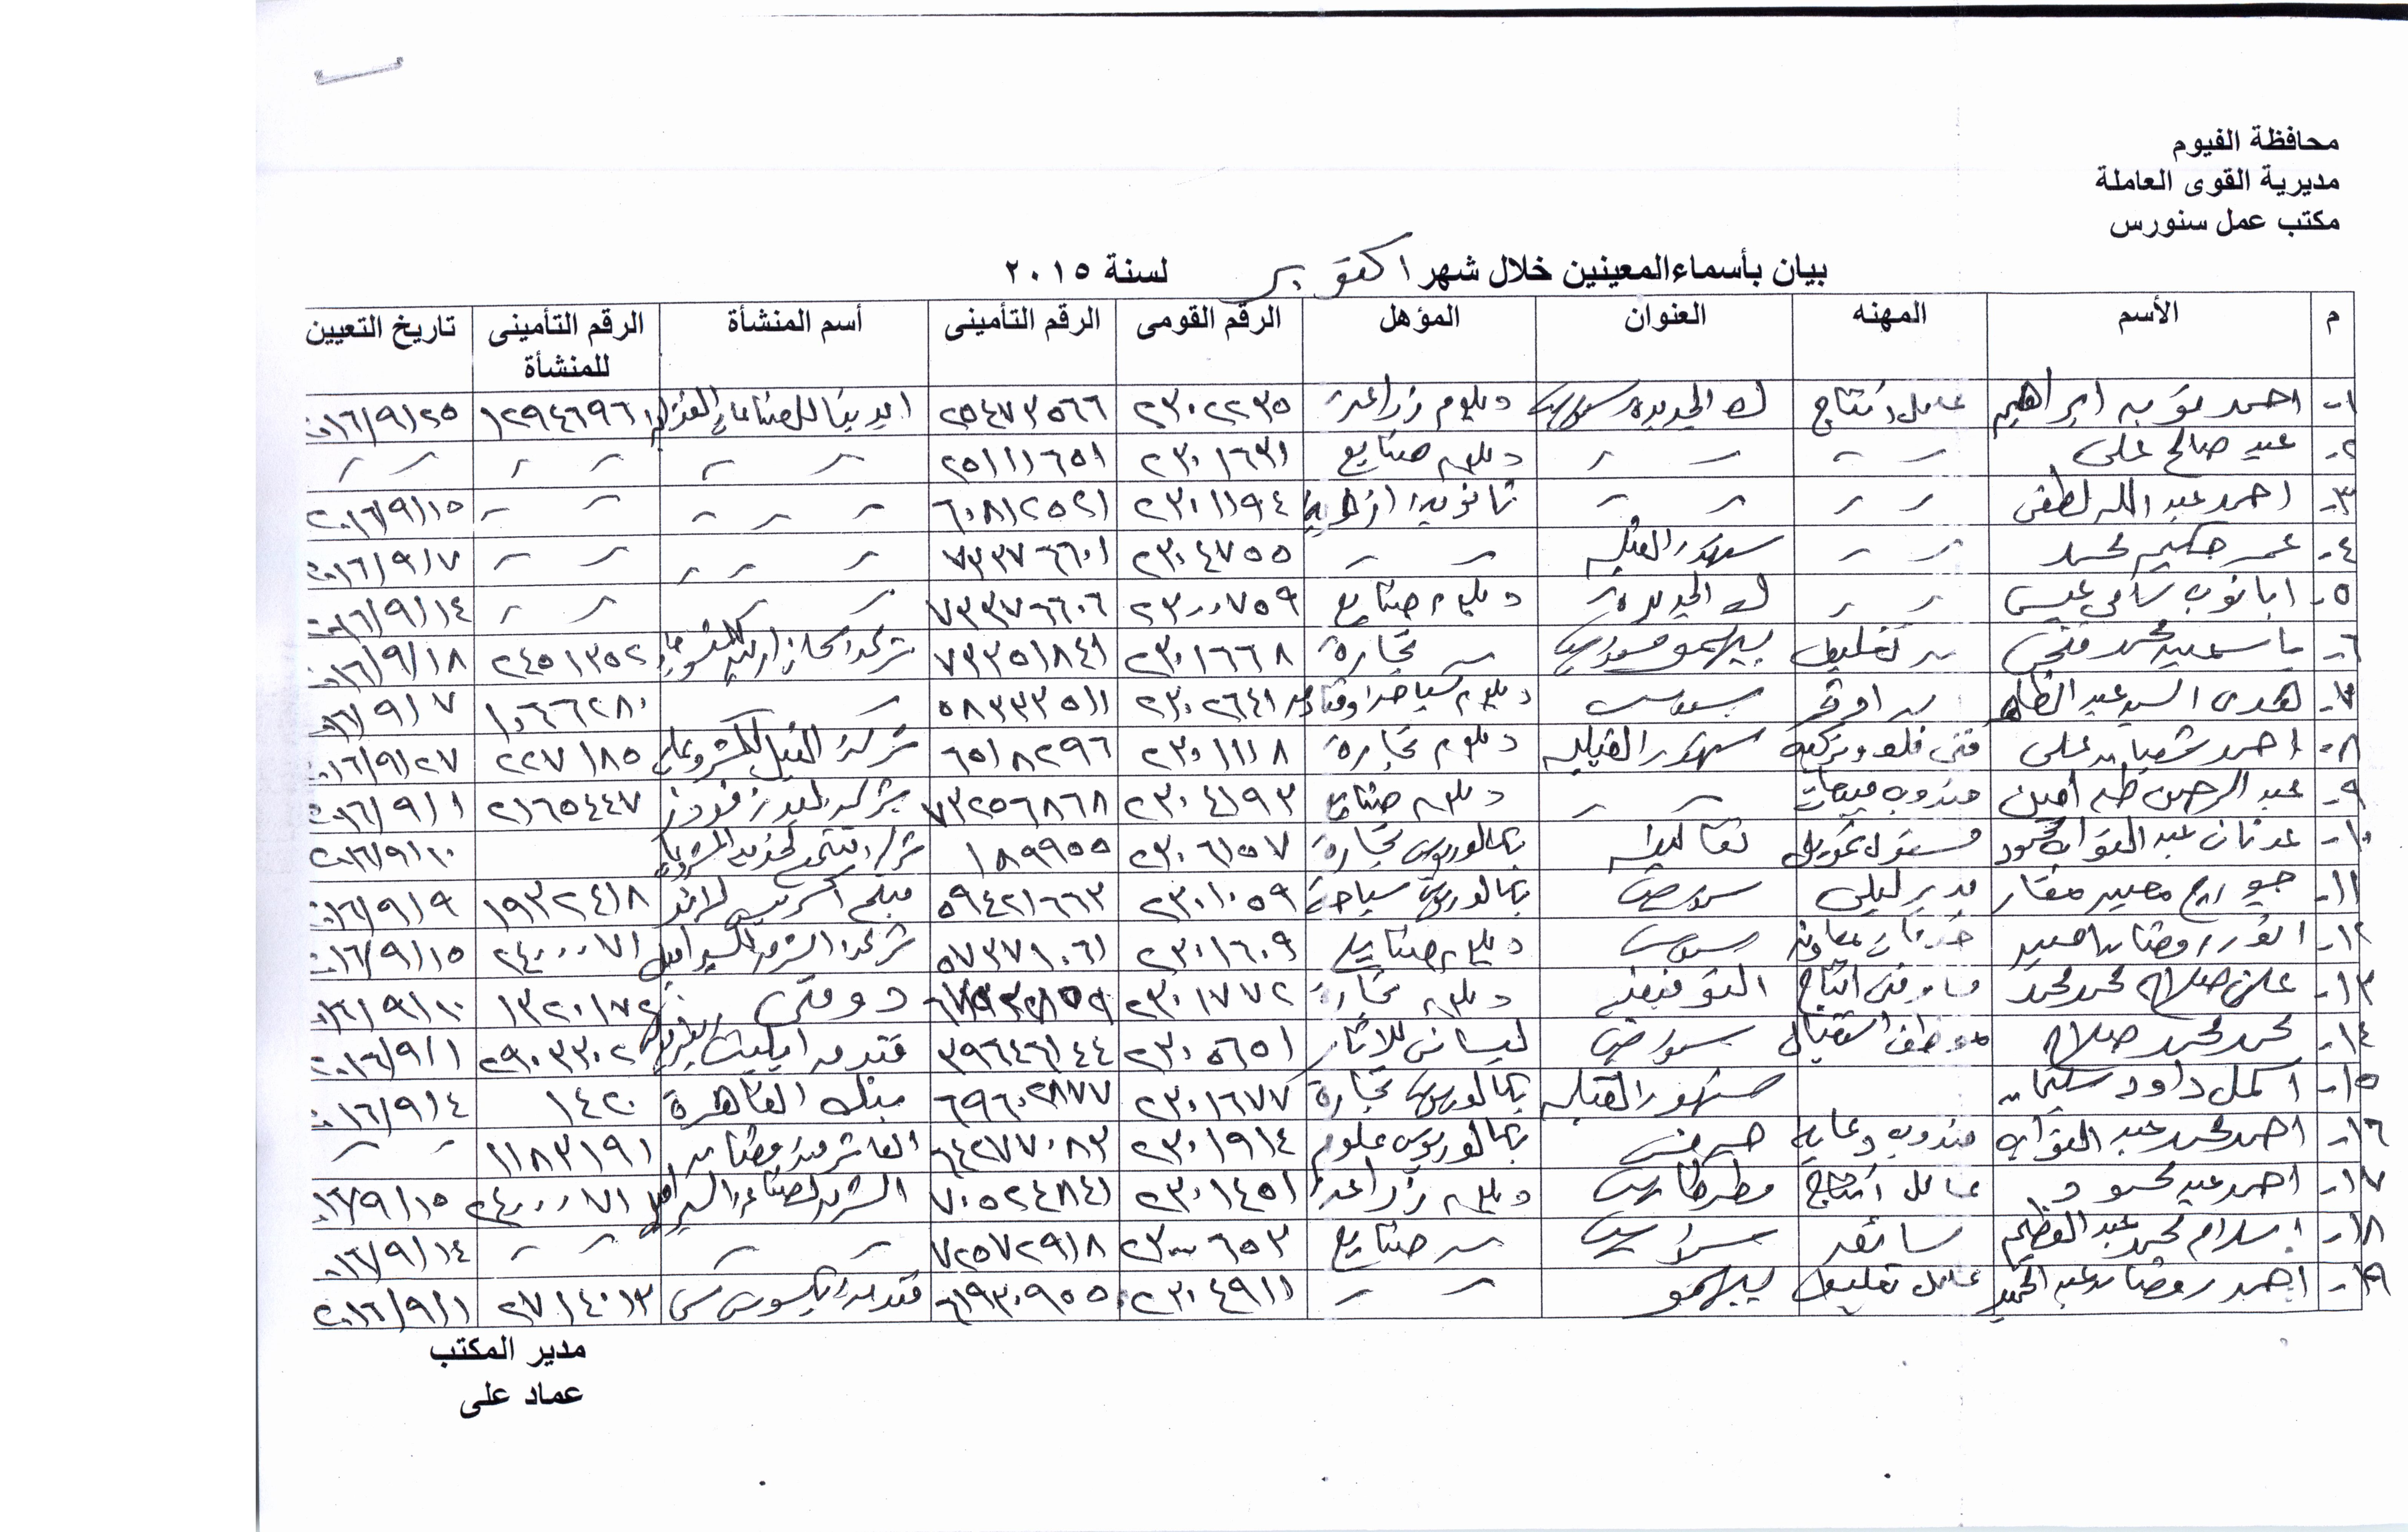 محافظة الفيوم
مديرية القوى العاملة
مكتب عمل سنورس
بيان بأسماءالمعينين خلال شهر اكتوبر لسنة ٢٠١٥
م الأسم المهنه العنوان المؤهل الرقم القومى الرقم التأمينى أسم المنشأة الرقم التأمينى للمنشأة تاريخ التعيين
١- احمد نوبه ابراهيم عامل انتاج ك الجديدة سنورس دبلوم زراعة ٢٣٠٢٢٣٥ ٢٥٤٧٣٥٦٦ للصناعات ١٢٩٤٦٩٦ ٢٠١٦/٩/٢٥
٢- عيد صالح على ~ ~ ~ ~ دبلوم صنايع ٢٣٠١٦٣١ ٢٥١١١٦٥١ ~ ~ ~ ~ ~ ~
٣- احمد عبد الله لطفى ~ ~ ~ ~ ثانوية ازهرية ٢٣٠١١٩٤ ٦٠٨١٢٥٢١ ~ ~ ~ ~ ~ ٢٠١٦/٩/١٥
٤- عمر حكيم محمد ~ ~ سنهور القبليه ~ ~ ٢٣٠٤٧٥٥ ٧٣٣٧٦٦٠١ ~ ~ ~ ~ ~ ٢٠١٦/٩/٧
٥- ابانوب سامى عيسى ~ ~ ك الجديدة دبلوم صنايع ٢٣٠٠٧٥٩ ٧٣٣٧٦٦٠٦ ~ ~ ~ ~ ٢٠١٦/٩/١٤
٦- ياسمين محمد فتحى ~ تغليف بيهمو سنورس ~ تجارة ٢٣٠١٦٦٨ ٧٣٣٥١٨٤١ شركة ٢٤٥١٣٥٢ ٢٠١٦/٩/١٨
٧- هدى السيد عبد الظاهر سنورس دبلوم سياحة وفنادق ٢٣٠٢٦٤١ ٥٨٣٣٣٥١١ ~ ١٠٦٦٢٨٠ ٢٠١٦/٩/٧
٨- احمد شعبان على فنى فك وتركيب سنهور القبليه دبلوم تجارة ٢٣٠١١١٨ ٦٥١٨٢٩٦ شركة النيل للمشروعات ٢٢٧١٨٥ ٢٠١٦/٩/٢٧
٩- عبد الرحمن طه امين مندوب مبيعات ~ ~ دبلوم صنايع ٢٣٠٤١٩٣ ٧٣٢٥٦٨٦٨ شركة فودز ٢١٦٥٤٤٧ ٢٠١٦/٩/١
١٠- عدنان عبد التواب محمود مسئول تمويل نقاليفه بكالوريوس تجارة ٢٣٠٦١٥٧ ١٨٩٩٥٥ ٢٠١٦/٩/٢٠
١١- جورج سمير مقار مدير ليلى سنورس بكالوريوس سياحة ٢٣٠١٠٥٩ ٥٩٤٢١٦٦٣ ١٩٣٢٤١٨ ٢٠١٦/٩/٩
١٢- انور رمضان سيد خدمات معاونه سنورس دبلوم صنايع ٢٣٠١٦٠٩ ٥٧٣٧١٠٦١ شركة الشرق للسيراميك ٢٤٠٠٠٧١ ٢٠١٦/٩/١٥
١٣- على صلاح محمد محمد فنى انتاج التوفيقيه دبلوم تجارة ٢٣٠١٧٧٢ دومتى ١٣٢٠١٧٢ ٢٠١٦/٩/٢٠
١٤- محمد محمد صلاح موظف استقبال سنورس ليسانس للاثار ٢٣٠٥٦٥١ ٣٩٦٤٦١٤٤ فندق ٢٩٠٣٣٠٢ ٢٠١٦/٩/١
١٥- اكمل داود سليمان سنهور القبليه بكالوريوس تجارة ٢٣٠١٦٧٧ ٦٩٦٠٢٨٧٧ بنك القاهرة ١٤٢٠ ٢٠١٦/٩/٤
١٦- احمد محمد عبد التواب مندوب دعايه بكالوريوس علوم ٢٣٠١٩١٤ ٦٤٢٧٧٠٨٣ العاشر من رمضان ١١٨٣١٩١ ~ ~
١٧- احمد عيد محمود عامل انتاج مطرطارس دبلوم زراعة ٢٣٠١٤٥١ ٧٠٥٢٤٨٤١ الشرق لصناعة السيراميك ٢٤٠٠٠٧١ ٢٠١٦/٩/١٥
١٨- اسلام محمد عبد العظيم سائق سنورس ~ صنايع ٢٣٠٠٦٥٣ ٧٢٥٧٢٩١٨ ~ ~ ~ ~ ٢٠١٦/٩/١٤
١٩- احمد رمضان عبد الحميد عامل تغليف بيهمو ~ ~ ٢٣٠٤٩١١ ٦١٩٣٠٩٥٥ فندق ٢٧١٤٠١٣ ٢٠١٦/٩/١
مدير المكتب
عماد على